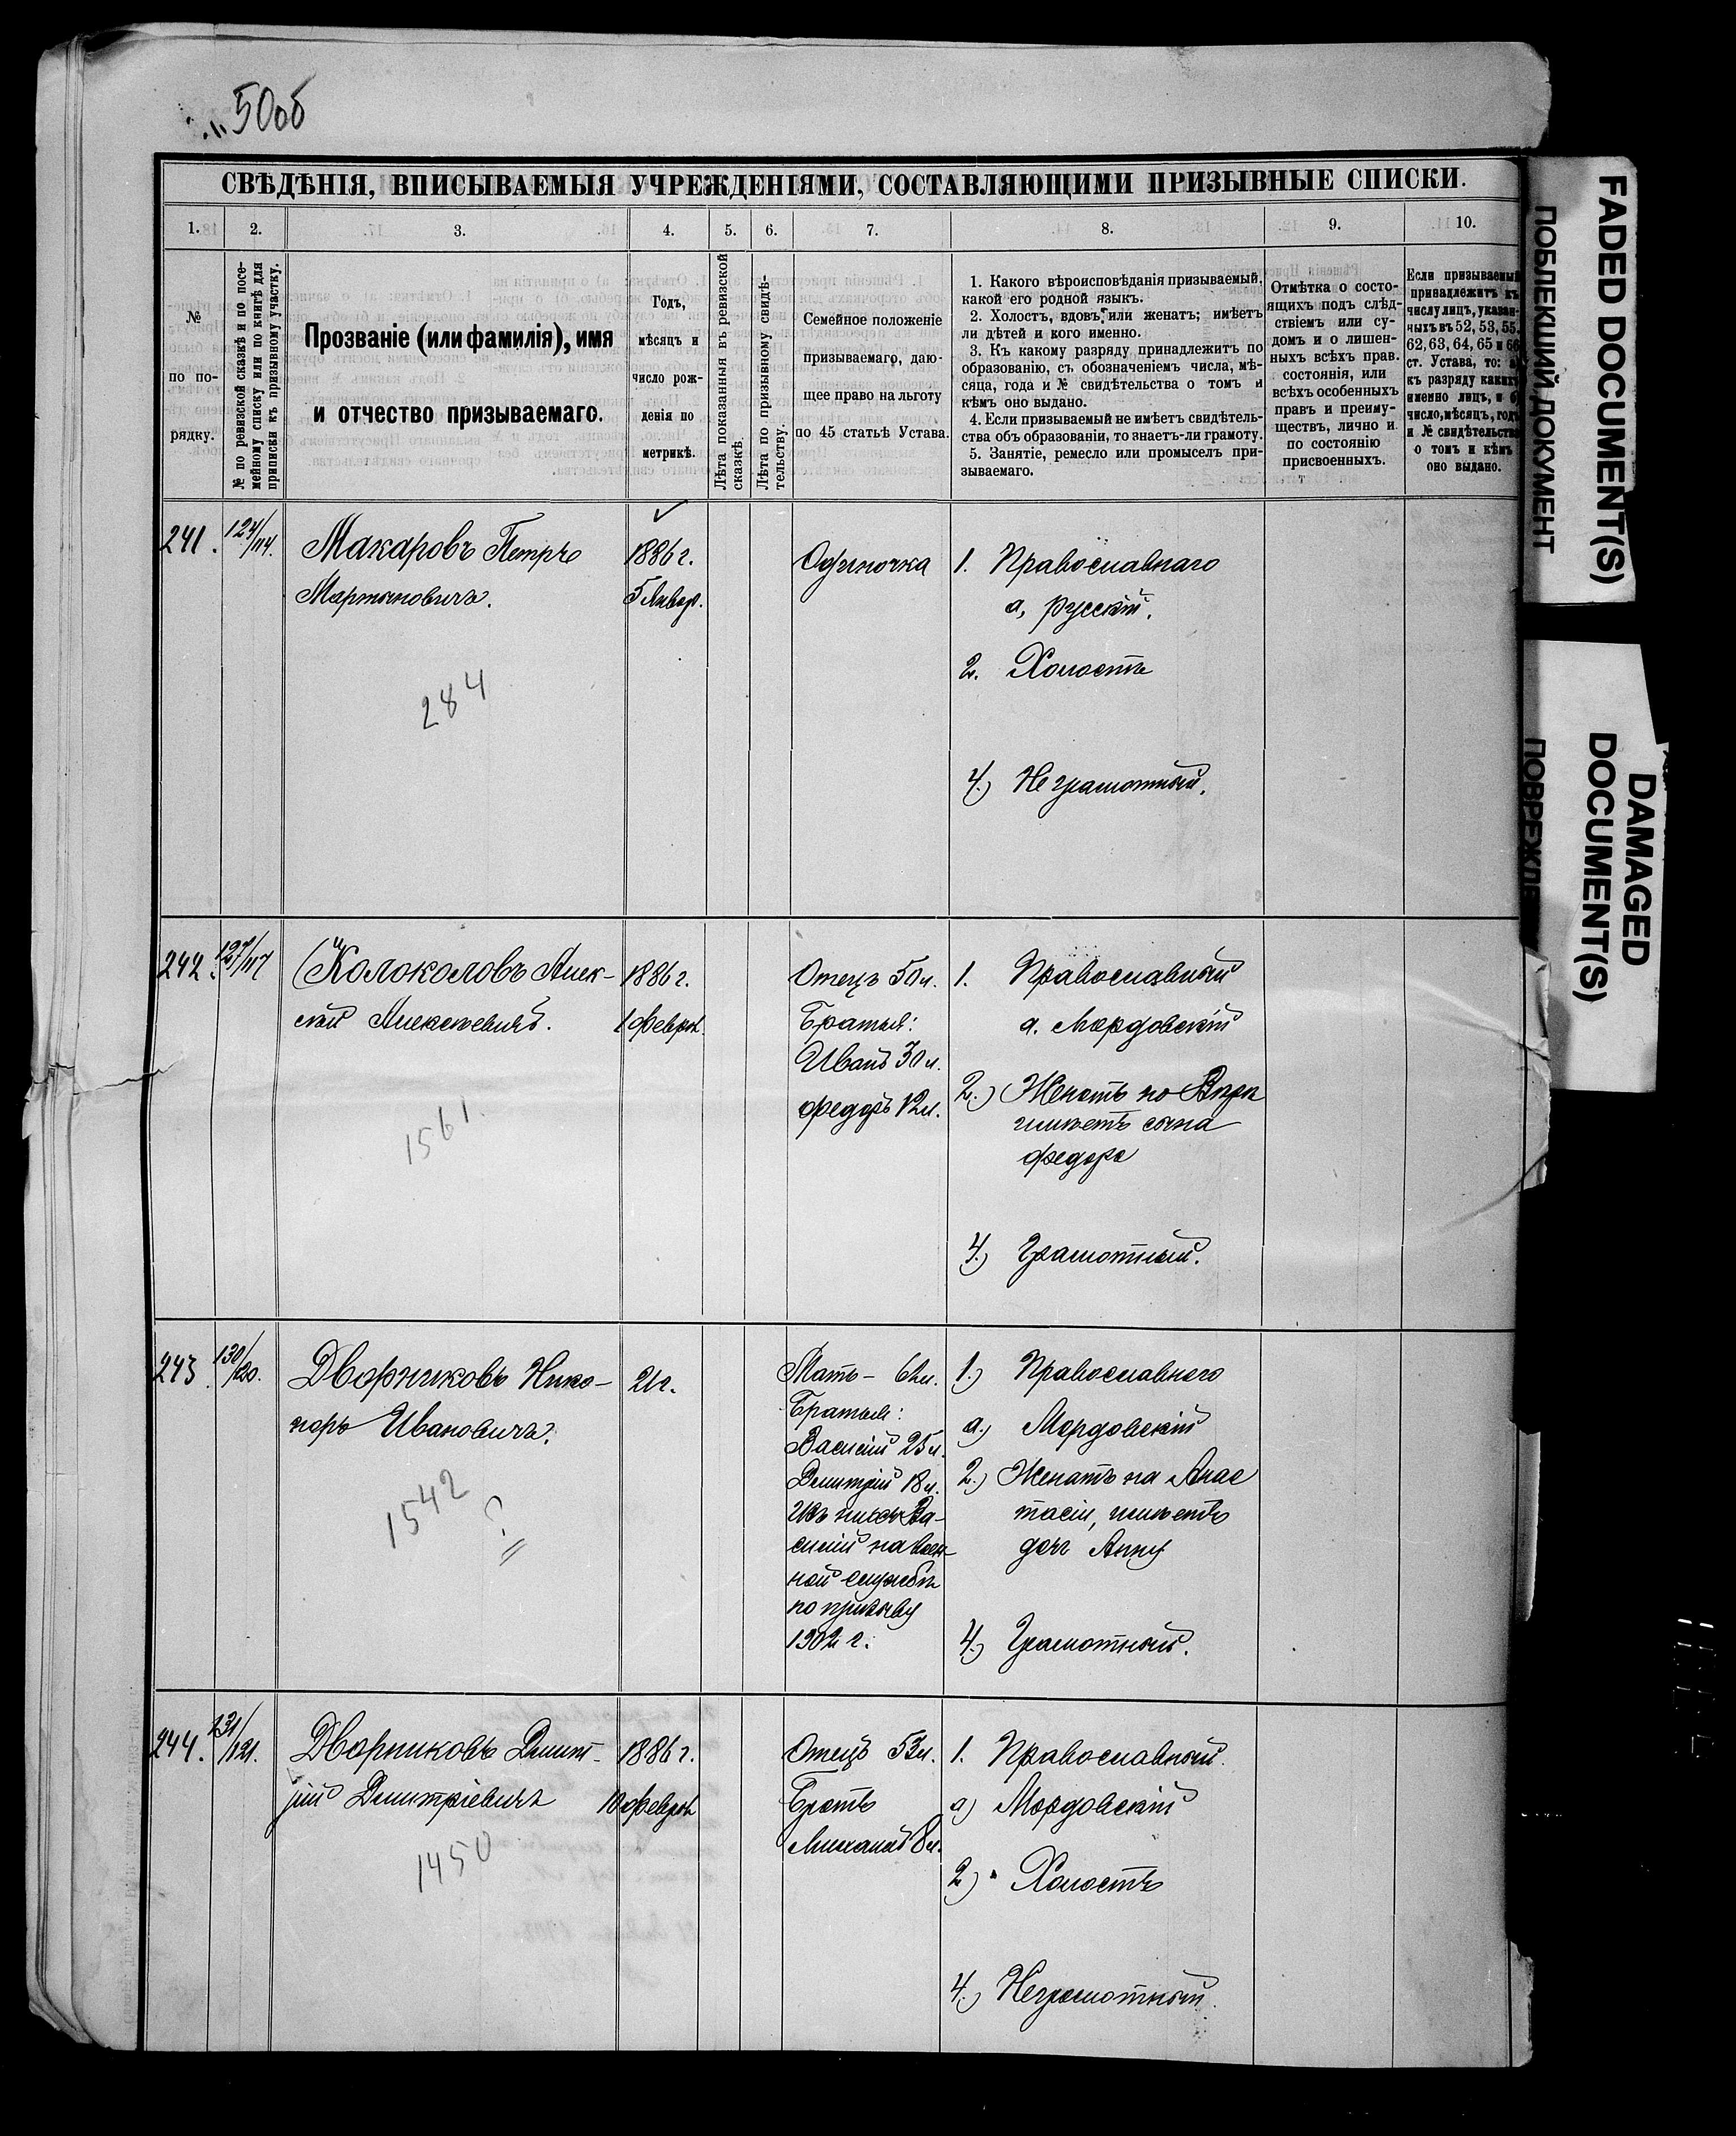 50об
СВѢДѢНІЯ, ВПИСЫВАЕМЫЯ УЧРЕЖДЕНІЯМИ, СОСТАВЛЯЮЩИМИ ПРИЗЫВНЫЕ СПИСКИ.
1. 2. 3. 4. 5. 6. 7. 8. 9. 10.
№
по по-
рядку.
№ по ревизской сказкѣ и по посе-
мейному списку или по книгѣ для
приписки къ призывному участку.
Прозваніе (или фамилія), имя
и отчество призываемаго.
Годъ,
мѣсяцъ и
число рож-
денія по
метрикѣ.
Лѣта показанныя въ ревизской
сказкѣ.
Лѣта по призывному свидѣ-
тельству.
Семейное положеніе
призываемаго, даю-
щее право на льготу
по 45 статьѣ Устава.
1. Какого вѣроисповѣданія призываемый,
какой его родной языкъ.
2. Холостъ, вдовъ, или женатъ; имѣетъ
ли дѣтей и кого именно.
3. Къ какому разряду принадлежитъ по
образованію, съ обозначеніемъ числа, мѣ-
сяца, года и № свидѣтельства о томъ и
кѣмъ оно выдано.
4. Если призываемый не имѣетъ свидѣтель-
ства объ образованіи, то знаетъ-ли грамоту.
5. Занятіе, ремесло или промыселъ при-
зываемаго.
Отмѣтка о состо-
ящихъ подъ слѣд-
ствіемъ или су-
домъ и о лишен-
ныхъ всѣхъ прав.
состоянія, или
всѣхъ особенныхъ
правъ и преиму-
ществъ, лично и
по состоянію
присвоенныхъ.
Если призываемый
принадлежитъ къ
числу лицъ, указан-
ныхъ въ 52, 53, 55,
62, 63, 64, 65 и 66
ст. Устава, то: а)
къ разряду какихъ
именно лицъ, и б)
число, мѣсяцъ, годъ
и № свидѣтельства
о томъ и кѣмъ
оно выдано.
241. 124/114.
Макаровъ Петръ
Мартыновичъ.
284
1886 г.
5 Январ.
Одиночка
1. Православнаго
а, русскій.
2. Холостъ
4.) Неграмотный.
242. 127/117
Колоколовъ Алек-
сѣй Алексѣевичъ.
1561.
1886 г.
1 Феврал.
Отецъ 50 л.
Братья:
Иванъ 30 л.
Федоръ 12 л.
1. Православный
а. Мордовскій
2.) Женатъ на
имѣетъ сына
Федора
4.) Грамотный.
243. 130/120.
Дворниковъ Ника-
норъ Ивановичъ.
1542
?
21 г.
Мать – 62 л.
Братья:
Василій 25 л.
Дмитрій 18 л.
Изъ нихъ Ва-
силій на воен-
ной службѣ
по призыву
1902 г.
1.) Православнаго
а.) Мордовскій
2.) Женатъ на Анас
тасіи, имѣетъ
доч Анну
4.) Грамотный.
244. 131/121.
Дворниковъ Дмит-
рій Дмитріевичъ
1450
1886 г.
10 Феврал
Отецъ 53 л.
Братъ
Михаилъ 8 л.
1. Православный.
а) Мордовскій
2) Холостъ
4.) Неграмотный.
FADED DOCUMENT(S)
ПОБЛЕКШИЙ ДОКУМЕНТ
DAMAGED
DOCUMENT(S)